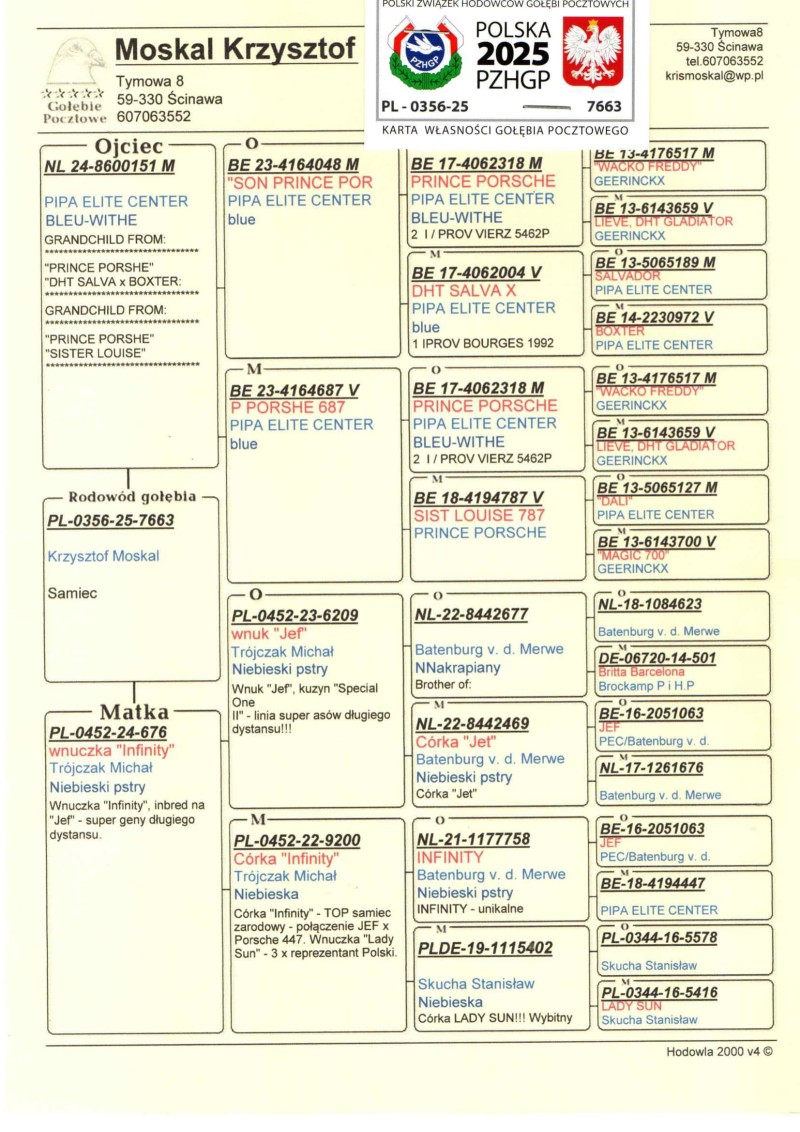 POLSKI ZWIĄZEK HODOWCÓW GOŁĘBI POCZTOWYCH
PZHGP
POLSKA
2025
PZHGP
PL - 0356-25 7663
KARTA WŁASNOŚCI GOŁĘBIA POCZTOWEGO
Gołębie
Pocztowe
Moskal Krzysztof
Tymowa 8
59-330 Ścinawa
607063552
Tymowa8
59-330 Ścinawa
tel.607063552
krismoskal@wp.pl
Ojciec
NL 24-8600151 M
PIPA ELITE CENTER
BLEU-WITHE
GRANDCHILD FROM:
****************************************
"PRINCE PORSHE"
"DHT SALVA x BOXTER:
****************************************
GRANDCHILD FROM:
****************************************
"PRINCE PORSHE"
"SISTER LOUISE"
****************************************
Rodowód gołębia
PL-0356-25-7663
Krzysztof Moskal
Samiec
Matka
PL-0452-24-676
wnuczka "Infinity"
Trójczak Michał
Niebieski pstry
Wnuczka "Infinity", inbred na
"Jef" - super geny długiego
dystansu.
O
BE 23-4164048 M
"SON PRINCE POR
PIPA ELITE CENTER
blue
M
BE 23-4164687 V
P PORSHE 687
PIPA ELITE CENTER
blue
O
PL-0452-23-6209
wnuk "Jef"
Trójczak Michał
Niebieski pstry
Wnuk "Jef", kuzyn "Special
One
II" - linia super asów długiego
dystansu!!!
M
PL-0452-22-9200
Córka "Infinity"
Trójczak Michał
Niebieska
Córka "Infinity" - TOP samiec
zarodowy - połączenie JEF x
Porsche 447. Wnuczka "Lady
Sun" - 3 x reprezentant Polski.
BE 17-4062318 M
PRINCE PORSCHE
PIPA ELITE CENTER
BLEU-WITHE
2 I / PROV VIERZ 5462P
M
BE 17-4062004 V
DHT SALVA X
PIPA ELITE CENTER
blue
1 IPROV BOURGES 1992
O
BE 17-4062318 M
PRINCE PORSCHE
PIPA ELITE CENTER
BLEU-WITHE
2 I / PROV VIERZ 5462P
M
BE 18-4194787 V
SIST LOUISE 787
PRINCE PORSCHE
O
NL-22-8442677
Batenburg v. d. Merwe
NNakrapiany
Brother of:
M
NL-22-8442469
Córka "Jet"
Batenburg v. d. Merwe
Niebieski pstry
Córka "Jet"
O
NL-21-1177758
INFINITY
Batenburg v. d. Merwe
Niebieski pstry
INFINITY - unikalne
M
PLDE-19-1115402
Skucha Stanisław
Niebieska
Córka LADY SUN!!! Wybitny
BE 13-4176517 M
"WACKO FREDDY"
GEERINCKX
M
BE 13-6143659 V
LIEVE, DHT GLADIATOR
GEERINCKX
O
BE 13-5065189 M
SALVADOR
PIPA ELITE CENTER
M
BE 14-2230972 V
BOXTER
PIPA ELITE CENTER
O
BE 13-4176517 M
"WACKO FREDDY"
GEERINCKX
M
BE 13-6143659 V
LIEVE, DHT GLADIATOR
GEERINCKX
O
BE 13-5065127 M
"DALI"
PIPA ELITE CENTER
M
BE 13-6143700 V
"MAGIC 700"
GEERINCKX
O
NL-18-1084623
Batenburg v. d. Merwe
M
DE-06720-14-501
Britta Barcelona
Brockamp P i H.P
O
BE-16-2051063
JEF
PEC/Batenburg v. d.
M
NL-17-1261676
Batenburg v. d. Merwe
O
BE-16-2051063
JEF
PEC/Batenburg v. d.
M
BE-18-4194447
PIPA ELITE CENTER
O
PL-0344-16-5578
Skucha Stanisław
M
PL-0344-16-5416
LADY SUN
Skucha Stanisław
Hodowla 2000 v4 ©